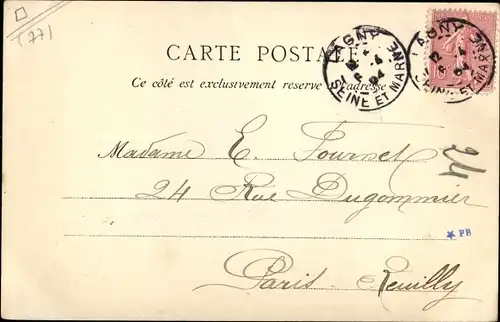 (77)
CARTE POSTALE
Ce côté est exclusivement réservé à l'adresse
LAGNY
SEINE ET MARNE
LAGNY
SEINE ET MARNE
10
24
Madame E. Fournet
24 Rue Dugommier
★ PB
Paris. Reuilly